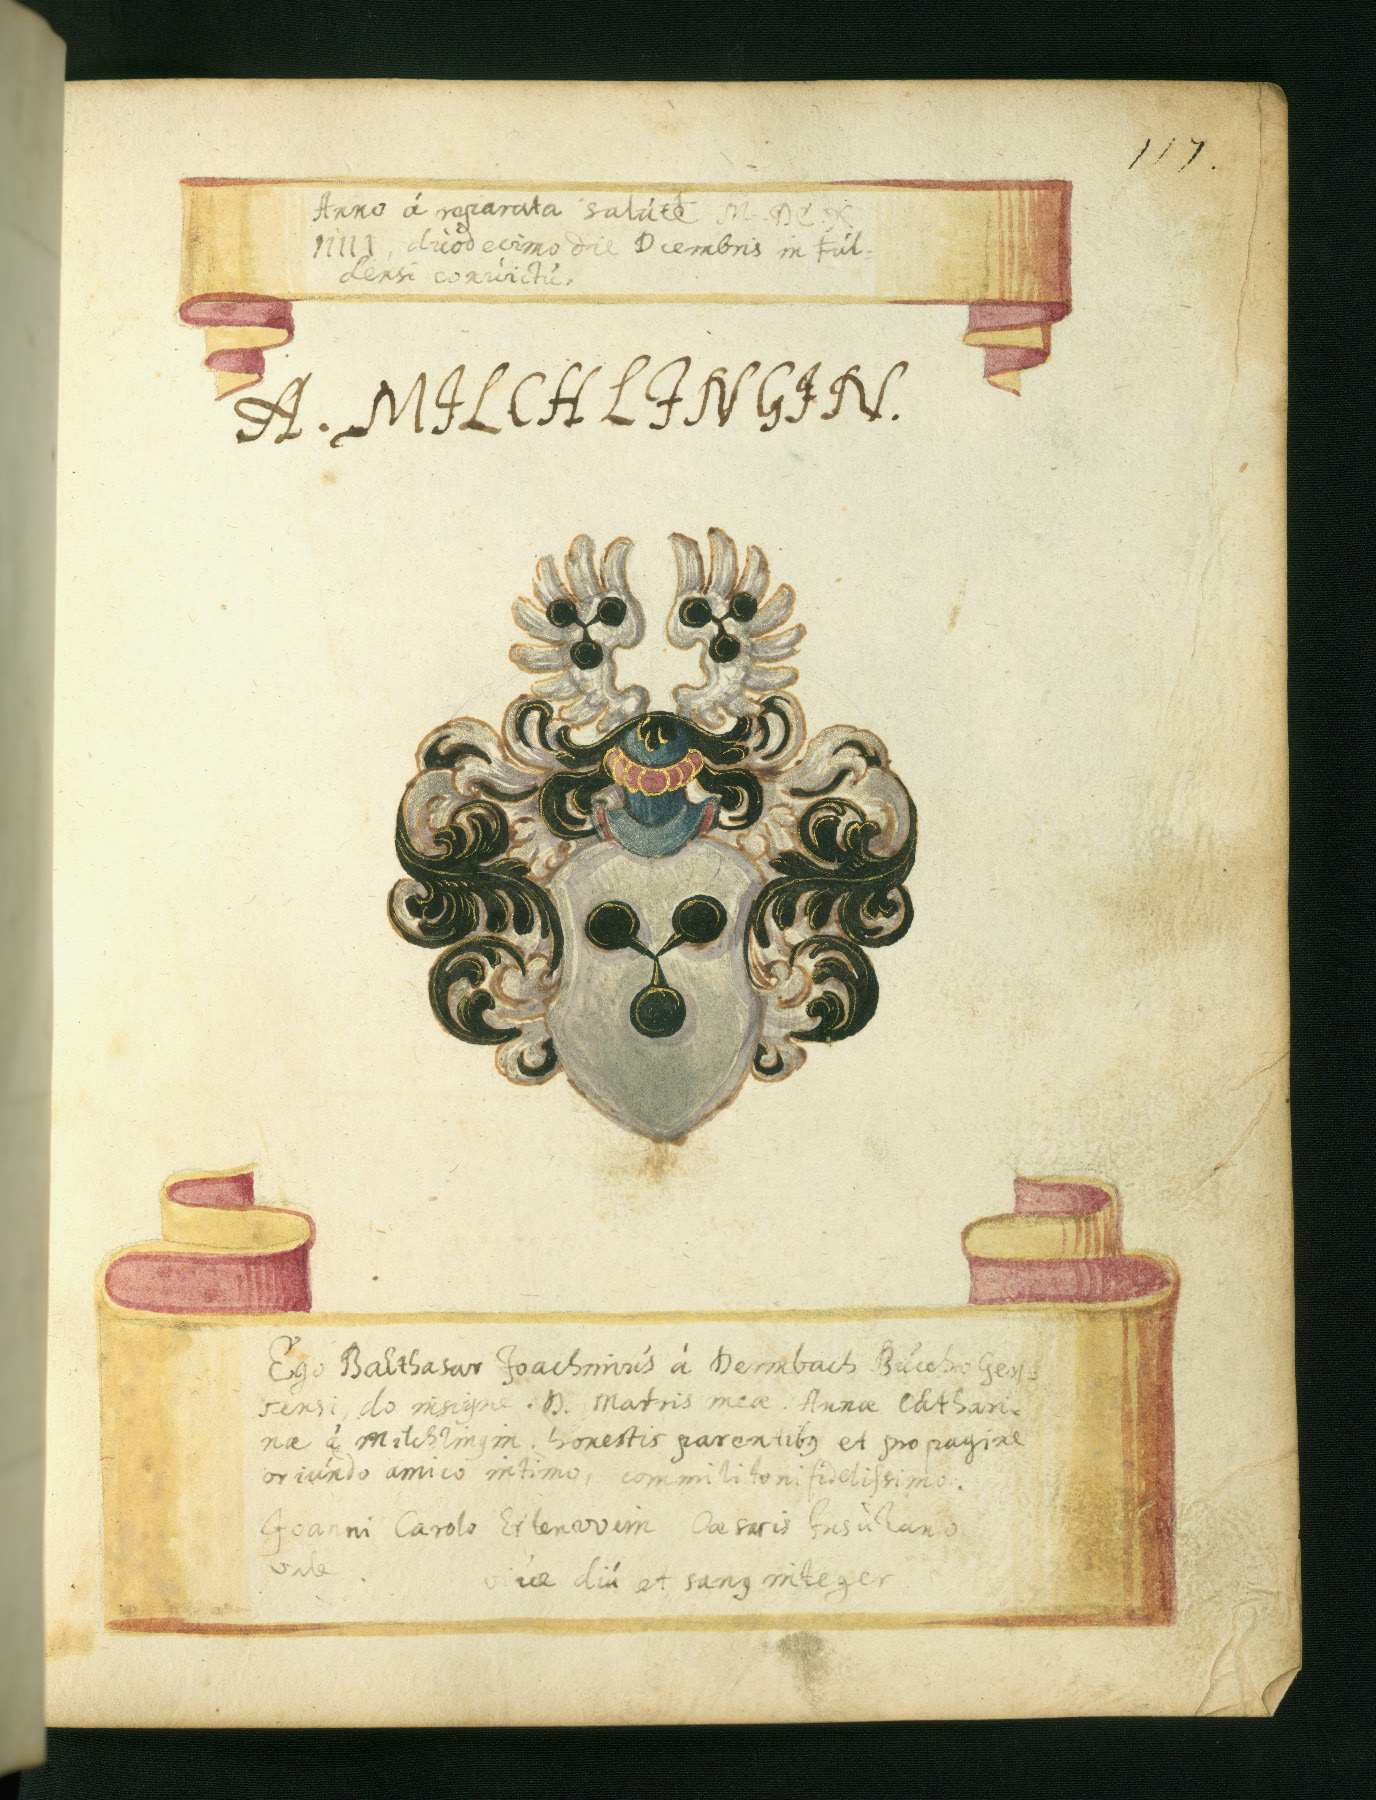 117.
Anno á reparata salúte M. DC. X
IIIII, dúodecimo die Dcembris in Fúl-
densi convictú.
A. MILCHLINGIN.
Ego Balthasar Joachimús á Dermbach Búcho
do insigne. D. Matris meæ. Annæ Cathari-
næ á Milchlingin. honestis parentibꝰ et propagine
oriúndo amico intimo, commilitoni fidelissimo.
Joanni Carolo Erlenwein Cæsaris Insúlano
vale.
vive diú et sanꝰ integer